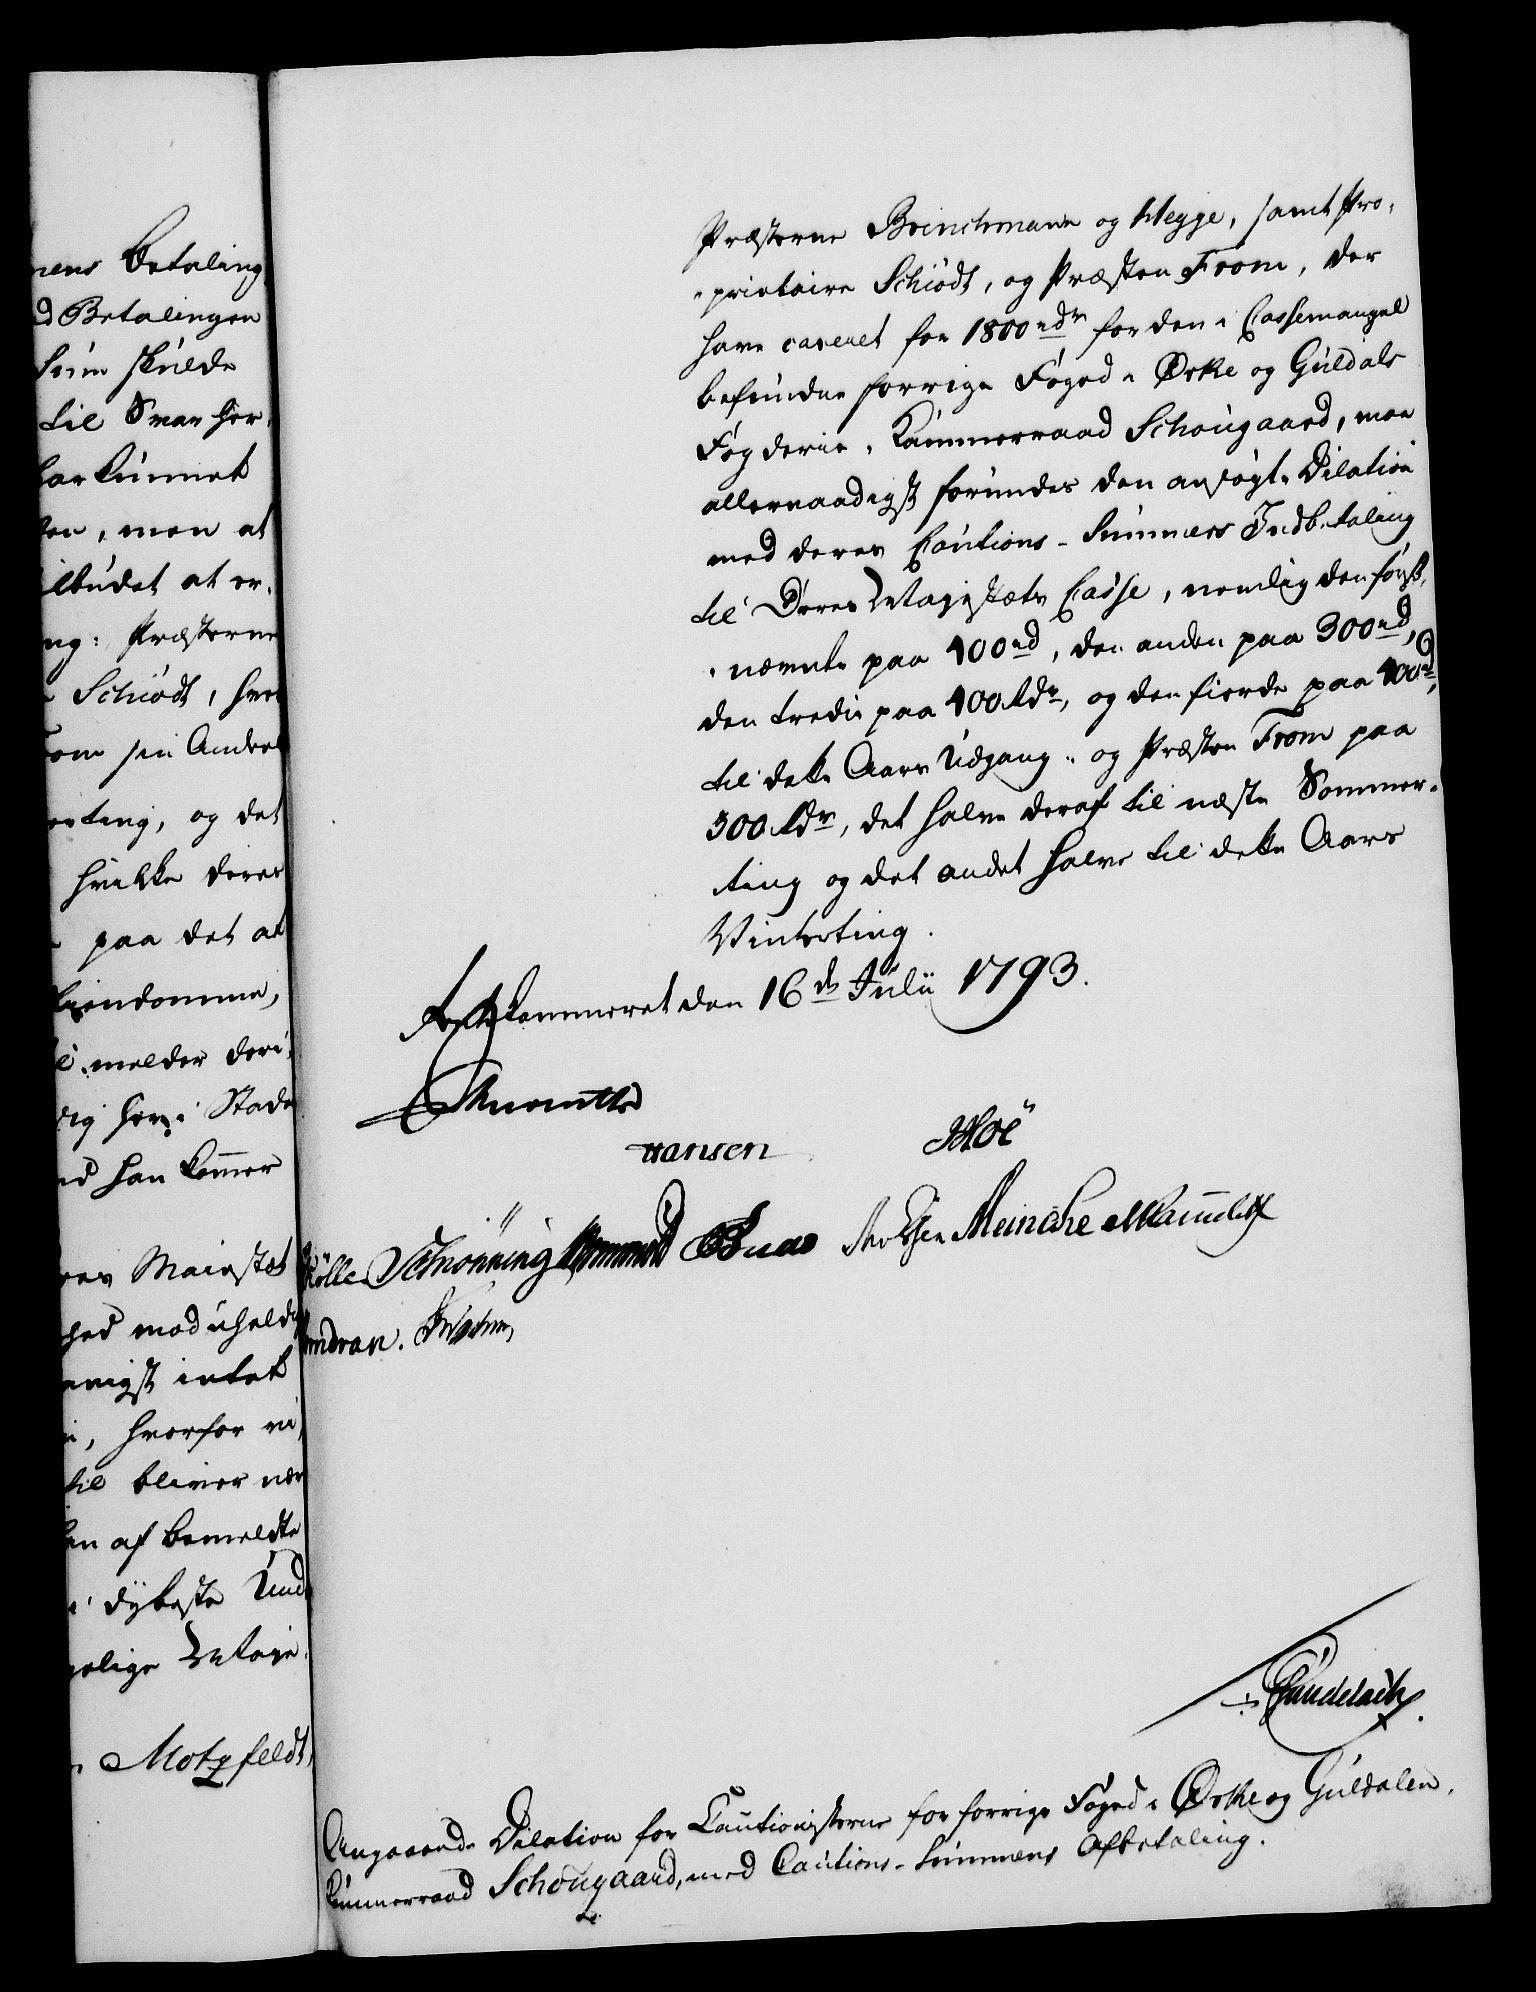 nens Betaling
d Betalingen
Sum skulde
til Svar her-
har kunnet
ten, men at
ilbudet at er-
ng: Præsterne
Schiødt, hver
som sin Andeel
erting, og det
hvilke deres
paa det at
Eiendomme,
melder deri-
rig her i Stade
ed han kommer
res Majestæt
hed mod uheldi
enigst intet
i, hvorfor vi
til bliver nær
en af bemeldte
i dybeste Und
elige Maje-
Motzfeldt
Præsterne Brinchmann og Hegge, samt Pro-
-prietaire Schiødt, og Præsten From, der
have caveret for 1800 rdr for den i Cassemangel
befundne forrige Foged i Ørke og Guldals
Fogderie, Kammerraad Schougaard, maa
allernaadigst forundes den ansøgte Dilation
med deres Cautions-Summers Indbetaling
til Deres Majestæts Casse, nemlig den først-
-nævnte paa 400 rd, den anden paa 300 rd,
den tredie paa 400 Rdr, og den fierde paa 400 rd,
til dette Aars Udgang, og Præsten From paa
300 Rdr, det halve deraf til næste Sommer-
ting og det andet halve til dette Aars
Vinterting.
Rentekammeret den 16de Julii 1793.
Hansen Hoë
Rølle Schiønning Meincke
Wendran.
Gundelach.
Angaaende Dilation for Cautionisterne for forrige Foged i Ørke og Guldalen,
Kammerraad Schougaard, med Cautions-Summens Afbetaling.